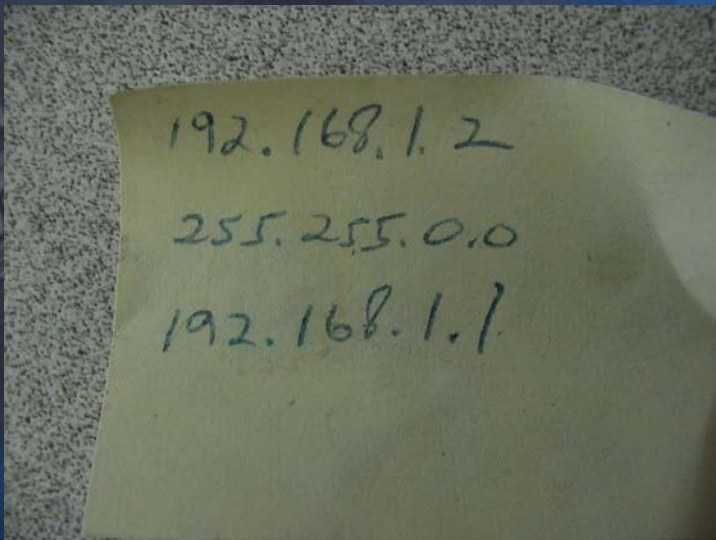 192.168.1.2
255.255.0.0
192.168.1.1